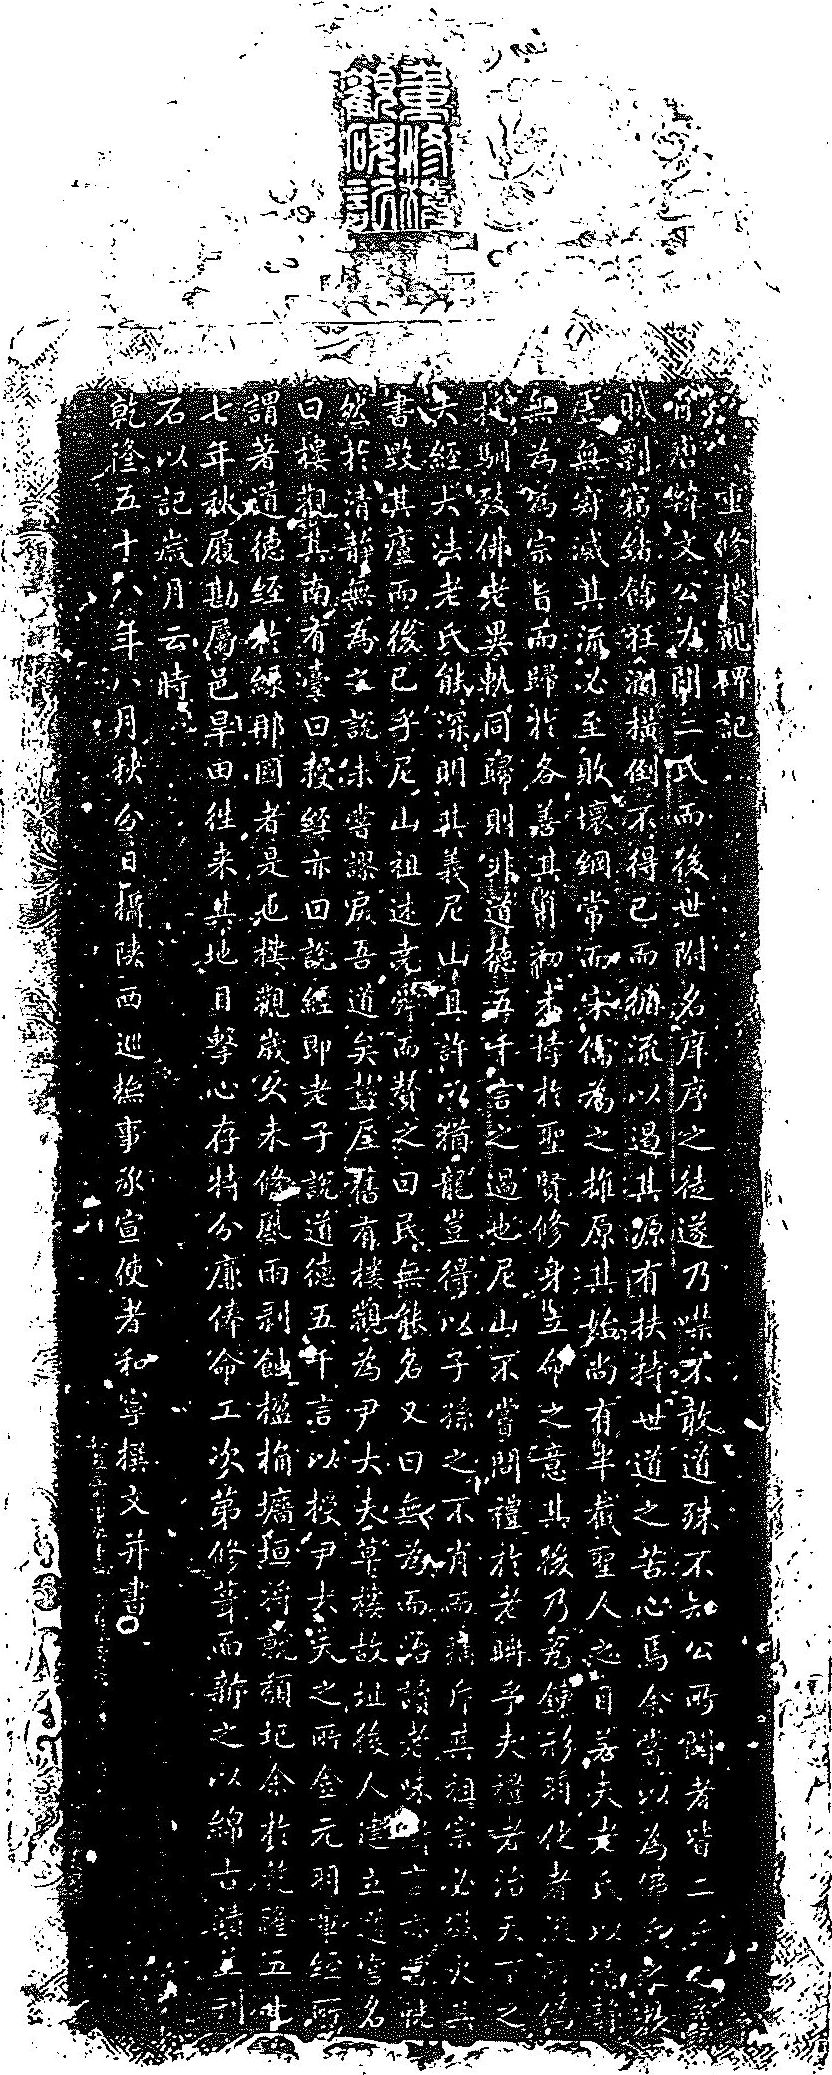 重修樓
觀碑記
重修樓觀碑記
唐韓文公力闢二氏而後世附名庠序之徒遂乃噤不敢道殊不知公所闢者皆二氏之
賊副窮緒餘狂瀾橫倒不得已而循流以遏其源有扶持世道之苦心焉余嘗以為佛氏之
虛無寂滅其流必至敗壞綱常而宋儒為之雄原其始尚有半截聖人之目若夫老氏以清靜
無為為宗旨而歸於各善其身初未悖於聖賢修身立命之意其後乃為鍊形羽化者流
馴致佛老異軌同歸則非道德五千言之過也尼山不嘗問禮於老聃乎夫禮者治天下之
大經大法老氏能深明其義尼山且許以猶龍豈得以子孫之不肖而誅斥其祖宗必欲火其
書毀其廬而後已乎尼山祖述堯舜而贊之曰民無能名又曰無為而治讀老
然於清靜無為之說未嘗謬戾吾道矣盩厔舊有樓觀為尹大夫草樓故址後人建立道宮名
曰樓觀其南有臺曰授經亦曰說經即老子說道德五千言以授尹大夫之所金元羽重經所
謂著道德經於綠那園者是也樓觀歲久未修風雨剝蝕楹桷墉垣將就頹圮余於乾隆五十
七年秋履勘屬邑旱田往來其地目擊心存特分廉俸命工次第修葺而新之以綿古蹟並刊
石以記歲月云時
乾隆五十八年八月秋分日撫陝西巡撫事承宣使者和寧撰文并書